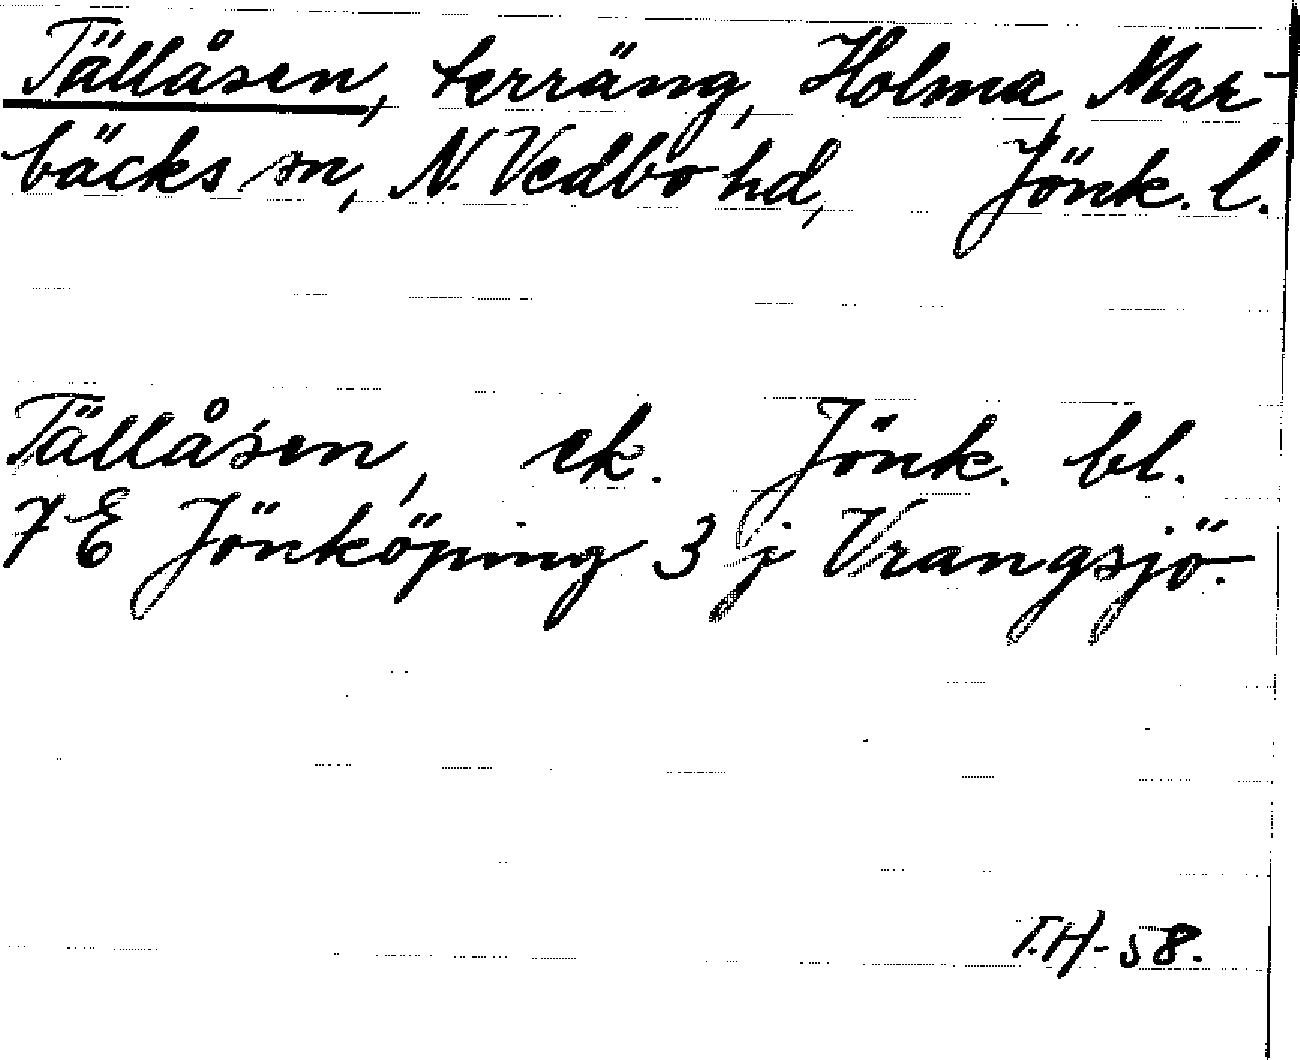 Tällåsen, terräng, Holma, Mar-
bäcks sn, N. Vedbo hd, Jönk. l.
Tällåsen, ek. Jönk. bl.
7 E Jönköping 3 j Vrangsjö.
T.H-58.